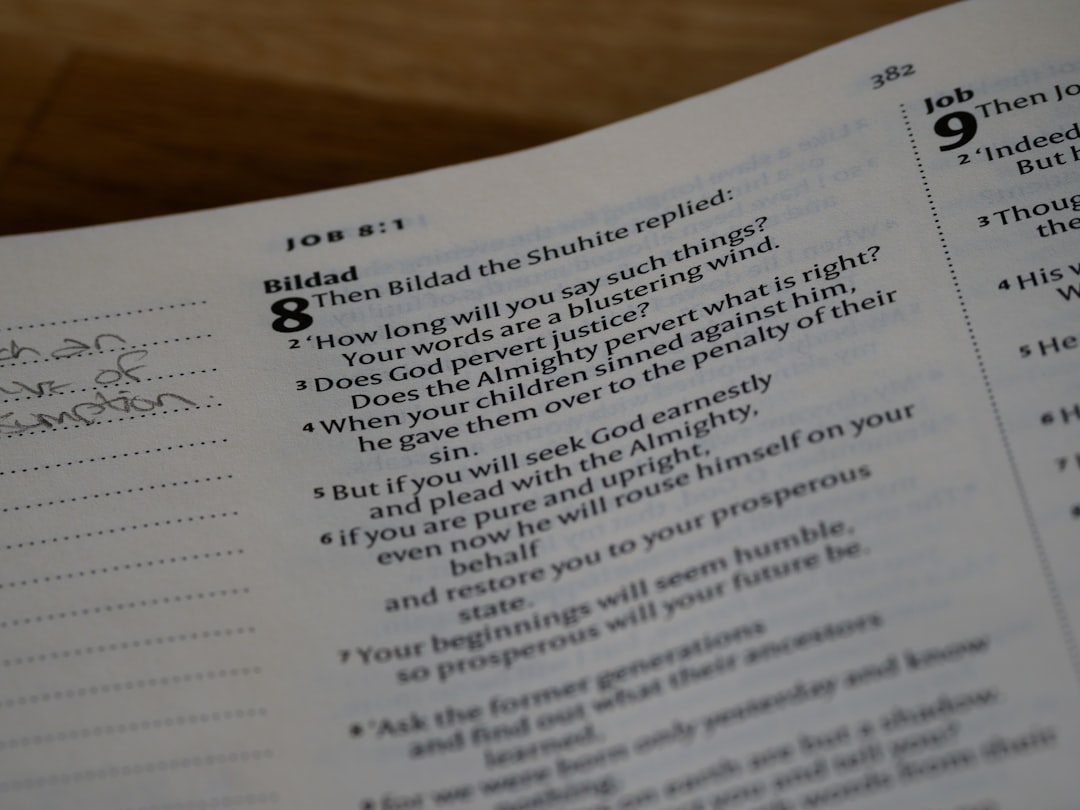 ch an
of
382
JOB 8:1
Bildad
8 Then Bildad the Shuhite replied:
2 ‘How long will you say such things?
Your words are a blustering wind.
3 Does God pervert justice?
Does the Almighty pervert what is right?
4 When your children sinned against him,
he gave them over to the penalty of their
sin.
5 But if you will seek God earnestly
and plead with the Almighty,
6 if you are pure and upright,
even now he will rouse himself on your
behalf
and restore you to your prosperous
state.
7 Your beginnings will seem humble,
so prosperous will your future be.
8 ‘Ask the former generations
and find out what their ancestors
learned,
9 for we were born only yesterday and know
nothing,
on earth are but a shadow.
and tell you?
words from their
Job
9 Then Jo
2 ‘Indeed
But h
3 Thoug
the
4 His w
W
5 He
6 H
7